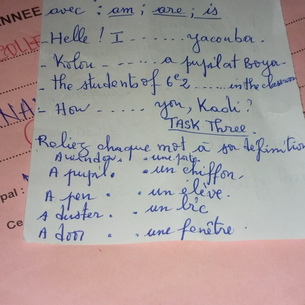 ANNEE
avec : am ; are ; is
- Hello ! I ....... yacouba.
- Kolou ....... a pupil at Boya
- the students of 6e2 ..... in the classroom
- How ....... you, Kadi ?
TASK Three.
Reliez chaque mot à sa définition
A window . . une porte
A pupil . . un chiffon.
A pen . . un élève.
A duster . . un bic
A door . . une fenêtre.